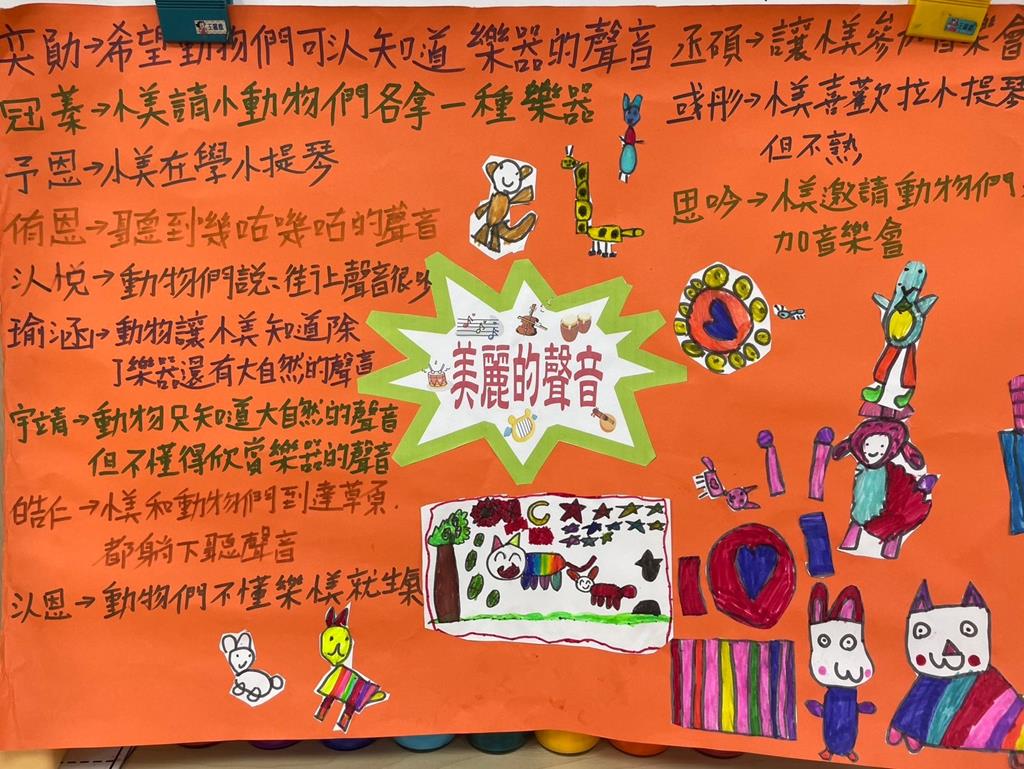 奕勛→希望動物們可以知道樂器的聲音
冠蓁→小美請小動物們各拿一種樂器
予恩→小美在學小提琴
侑恩→聽到嘰咕嘰咕的聲音
以悅→動物們說:街上聲音很
瑜涵→動物讓小美知道除
了樂器還有大自然的聲音
宇靖→動物只知道大自然的聲音
但不懂得欣賞樂器的聲音
皓仁→小美和動物們到達草原.
都躺下聽聲音
以恩→動物們不懂樂小美就生氣
美麗的聲音
丞碩→讓小美參加音樂會
彧彤→小美喜歡拉小提琴
但不熟
思吟→小美邀請動物們
加音樂會